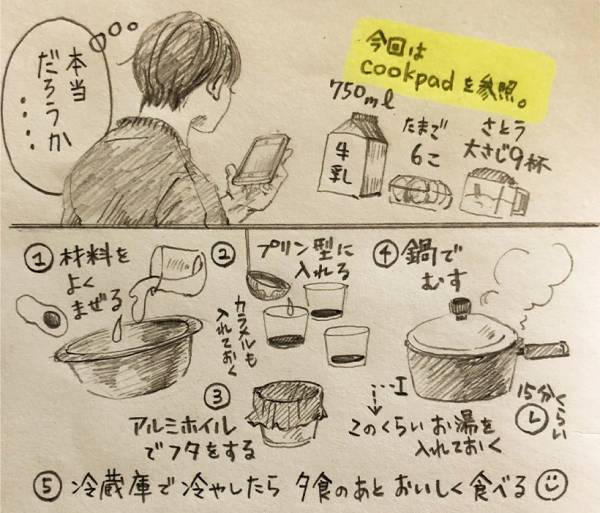 本当
だろうか
‥‥
今回は
cookpadを参照。
750ml
牛乳
たまご
6こ
さとう
大さじ9杯
① 材料を
よく
まぜる
② プリン型に
入れる
カラメルも
入れておく
③
アルミホイル
でフタをする
④ 鍋で
むす
15分くらい
このくらいお湯を
入れておく
⑤ 冷蔵庫で冷やしたら 夕食のあと おいしく食べる